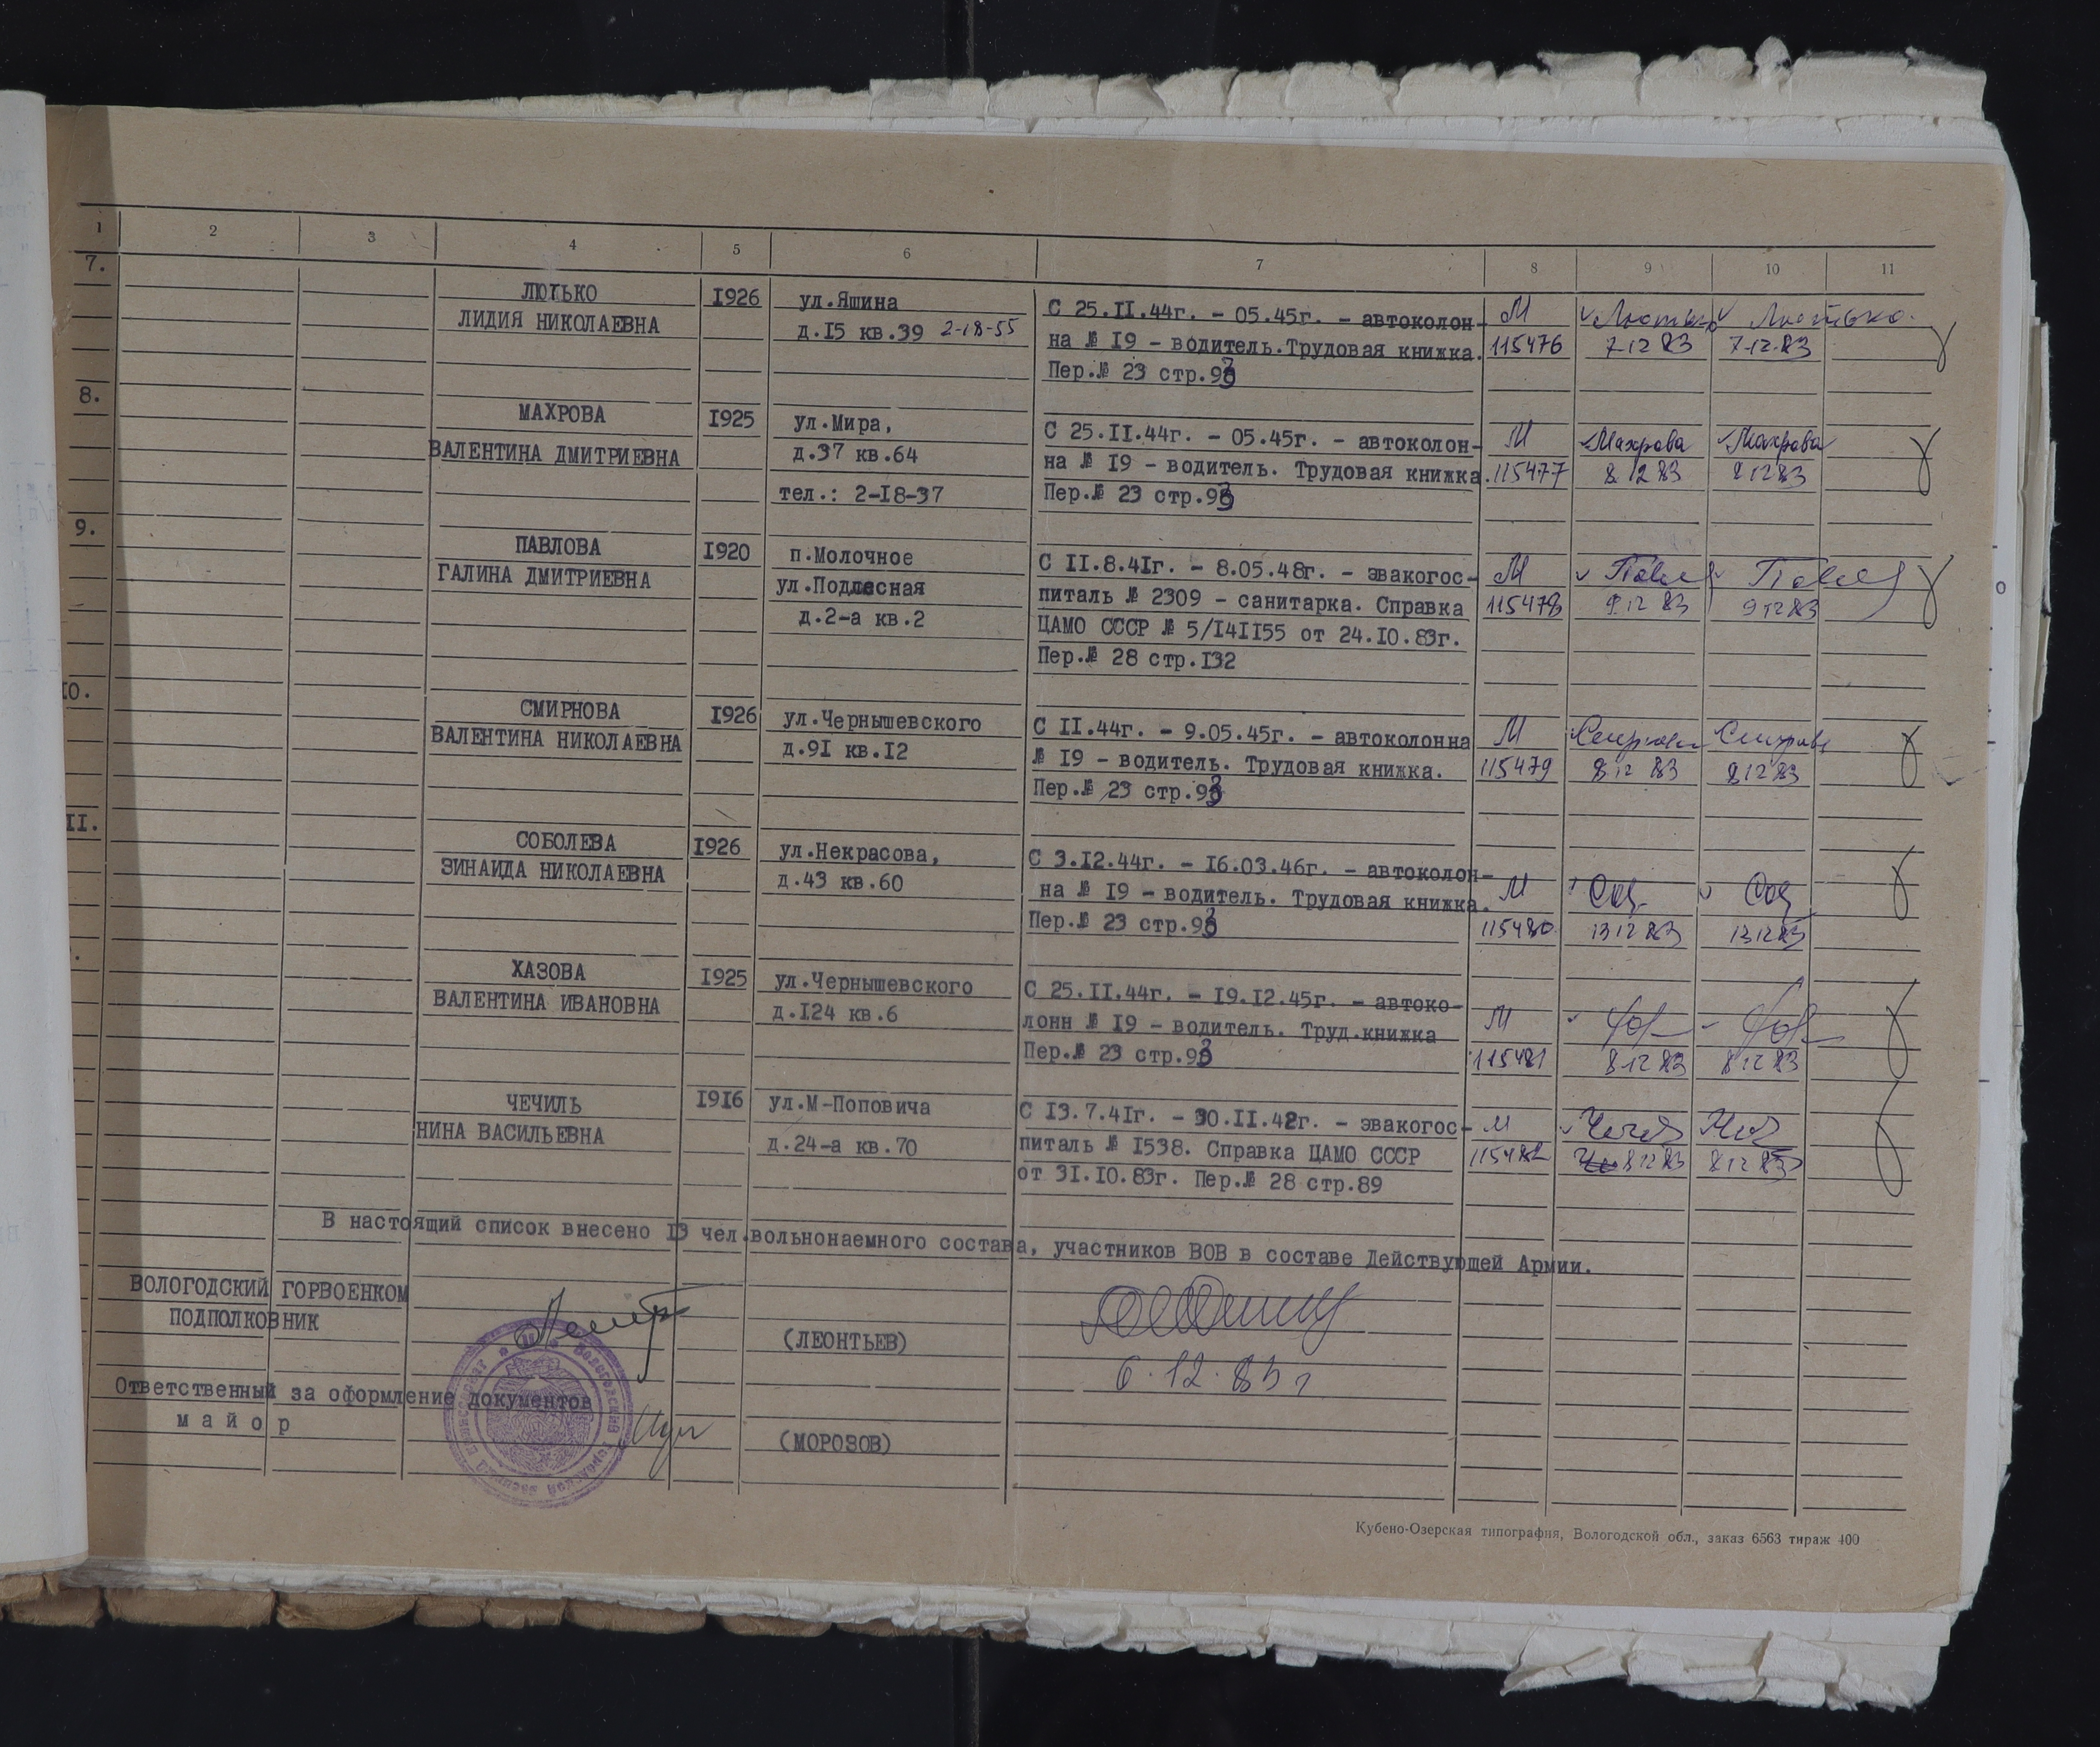 1 2 3 4 5 6 7 8 9 10 11
7. ЛЮТЬКО I926 ул.Яшина С 25.II.44г. - 05.45г. - автоколон- М Лютько Лютько.
ЛИДИЯ НИКОЛАЕВНА д.I5 кв.39 2-18-55 на № I9 - водитель.Трудовая книжка. 115476 7.12 83 7.12.83
Пер.№ 23 стр.93
8. МАХРОВА I925 ул.Мира, С 25.II.44г. - 05.45г. - автоколон- М Махрова Махрова
ВАЛЕНТИНА ДМИТРИЕВНА д.37 кв.64 на № I9 - водитель. Трудовая книжка. 115477 8.12 83 8 12 83
тел.: 2-I8-37 Пер.№ 23 стр.93
9. ПАВЛОВА I920 п.Молочное С II.8.4Iг. - 8.05.48г. - эвакогос- М
ГАЛИНА ДМИТРИЕВНА ул.Подлесная питаль № 2309 - санитарка. Справка 115478 9 12 83 9 12 83
д.2-а кв.2 ЦАМО СССР № 5/I4II55 от 24.I0.83г.
Пер.№ 28 стр.I32
I0. СМИРНОВА I926 ул.Чернышевского С II.44г. - 9.05.45г. - автоколонна М
ВАЛЕНТИНА НИКОЛАЕВНА д.9I кв.I2 № I9 - водитель. Трудовая книжка. 115479 8 12 83 8 12 83
Пер.№ 23 стр.93
II. СОБОЛЕВА I926 ул.Некрасова, С 3.I2.44г. - I6.03.46г. - автоколон-
ЗИНАИДА НИКОЛАЕВНА д.43 кв.60 на № I9 - водитель. Трудовая книжка. М
Пер.№ 23 стр.93 115480 13 12 83 13 12 83
ХАЗОВА I925 ул.Чернышевского С 25.II.44г. - I9.I2.45г. - автоко-
ВАЛЕНТИНА ИВАНОВНА д.I24 кв.6 лонн № I9 - водитель. Труд.книжка М
Пер.№ 23 стр.93 115481 8 12 83 8 12 83
ЧЕЧИЛЬ I9I6 ул.М-Поповича С I3.7.4Iг. - 30.II.42г. - эвакогос- М
НИНА ВАСИЛЬЕВНА д.24-а кв.70 питаль № I538. Справка ЦАМО СССР 115482 8 12 83 8 12 83
от 3I.I0.83г. Пер.№ 28 стр.89
В настоящий список внесено I3 чел.вольнонаемного состава, участников ВОВ в составе Действующей Армии.
ВОЛОГОДСКИЙ ГОРВОЕНКОМ
ПОДПОЛКОВНИК (ЛЕОНТЬЕВ)
6.12.83 г
Ответственный за оформление документов
м а й о р (МОРОЗОВ)
Кубено-Озерская типография, Вологодской обл., заказ 6563 тираж 400